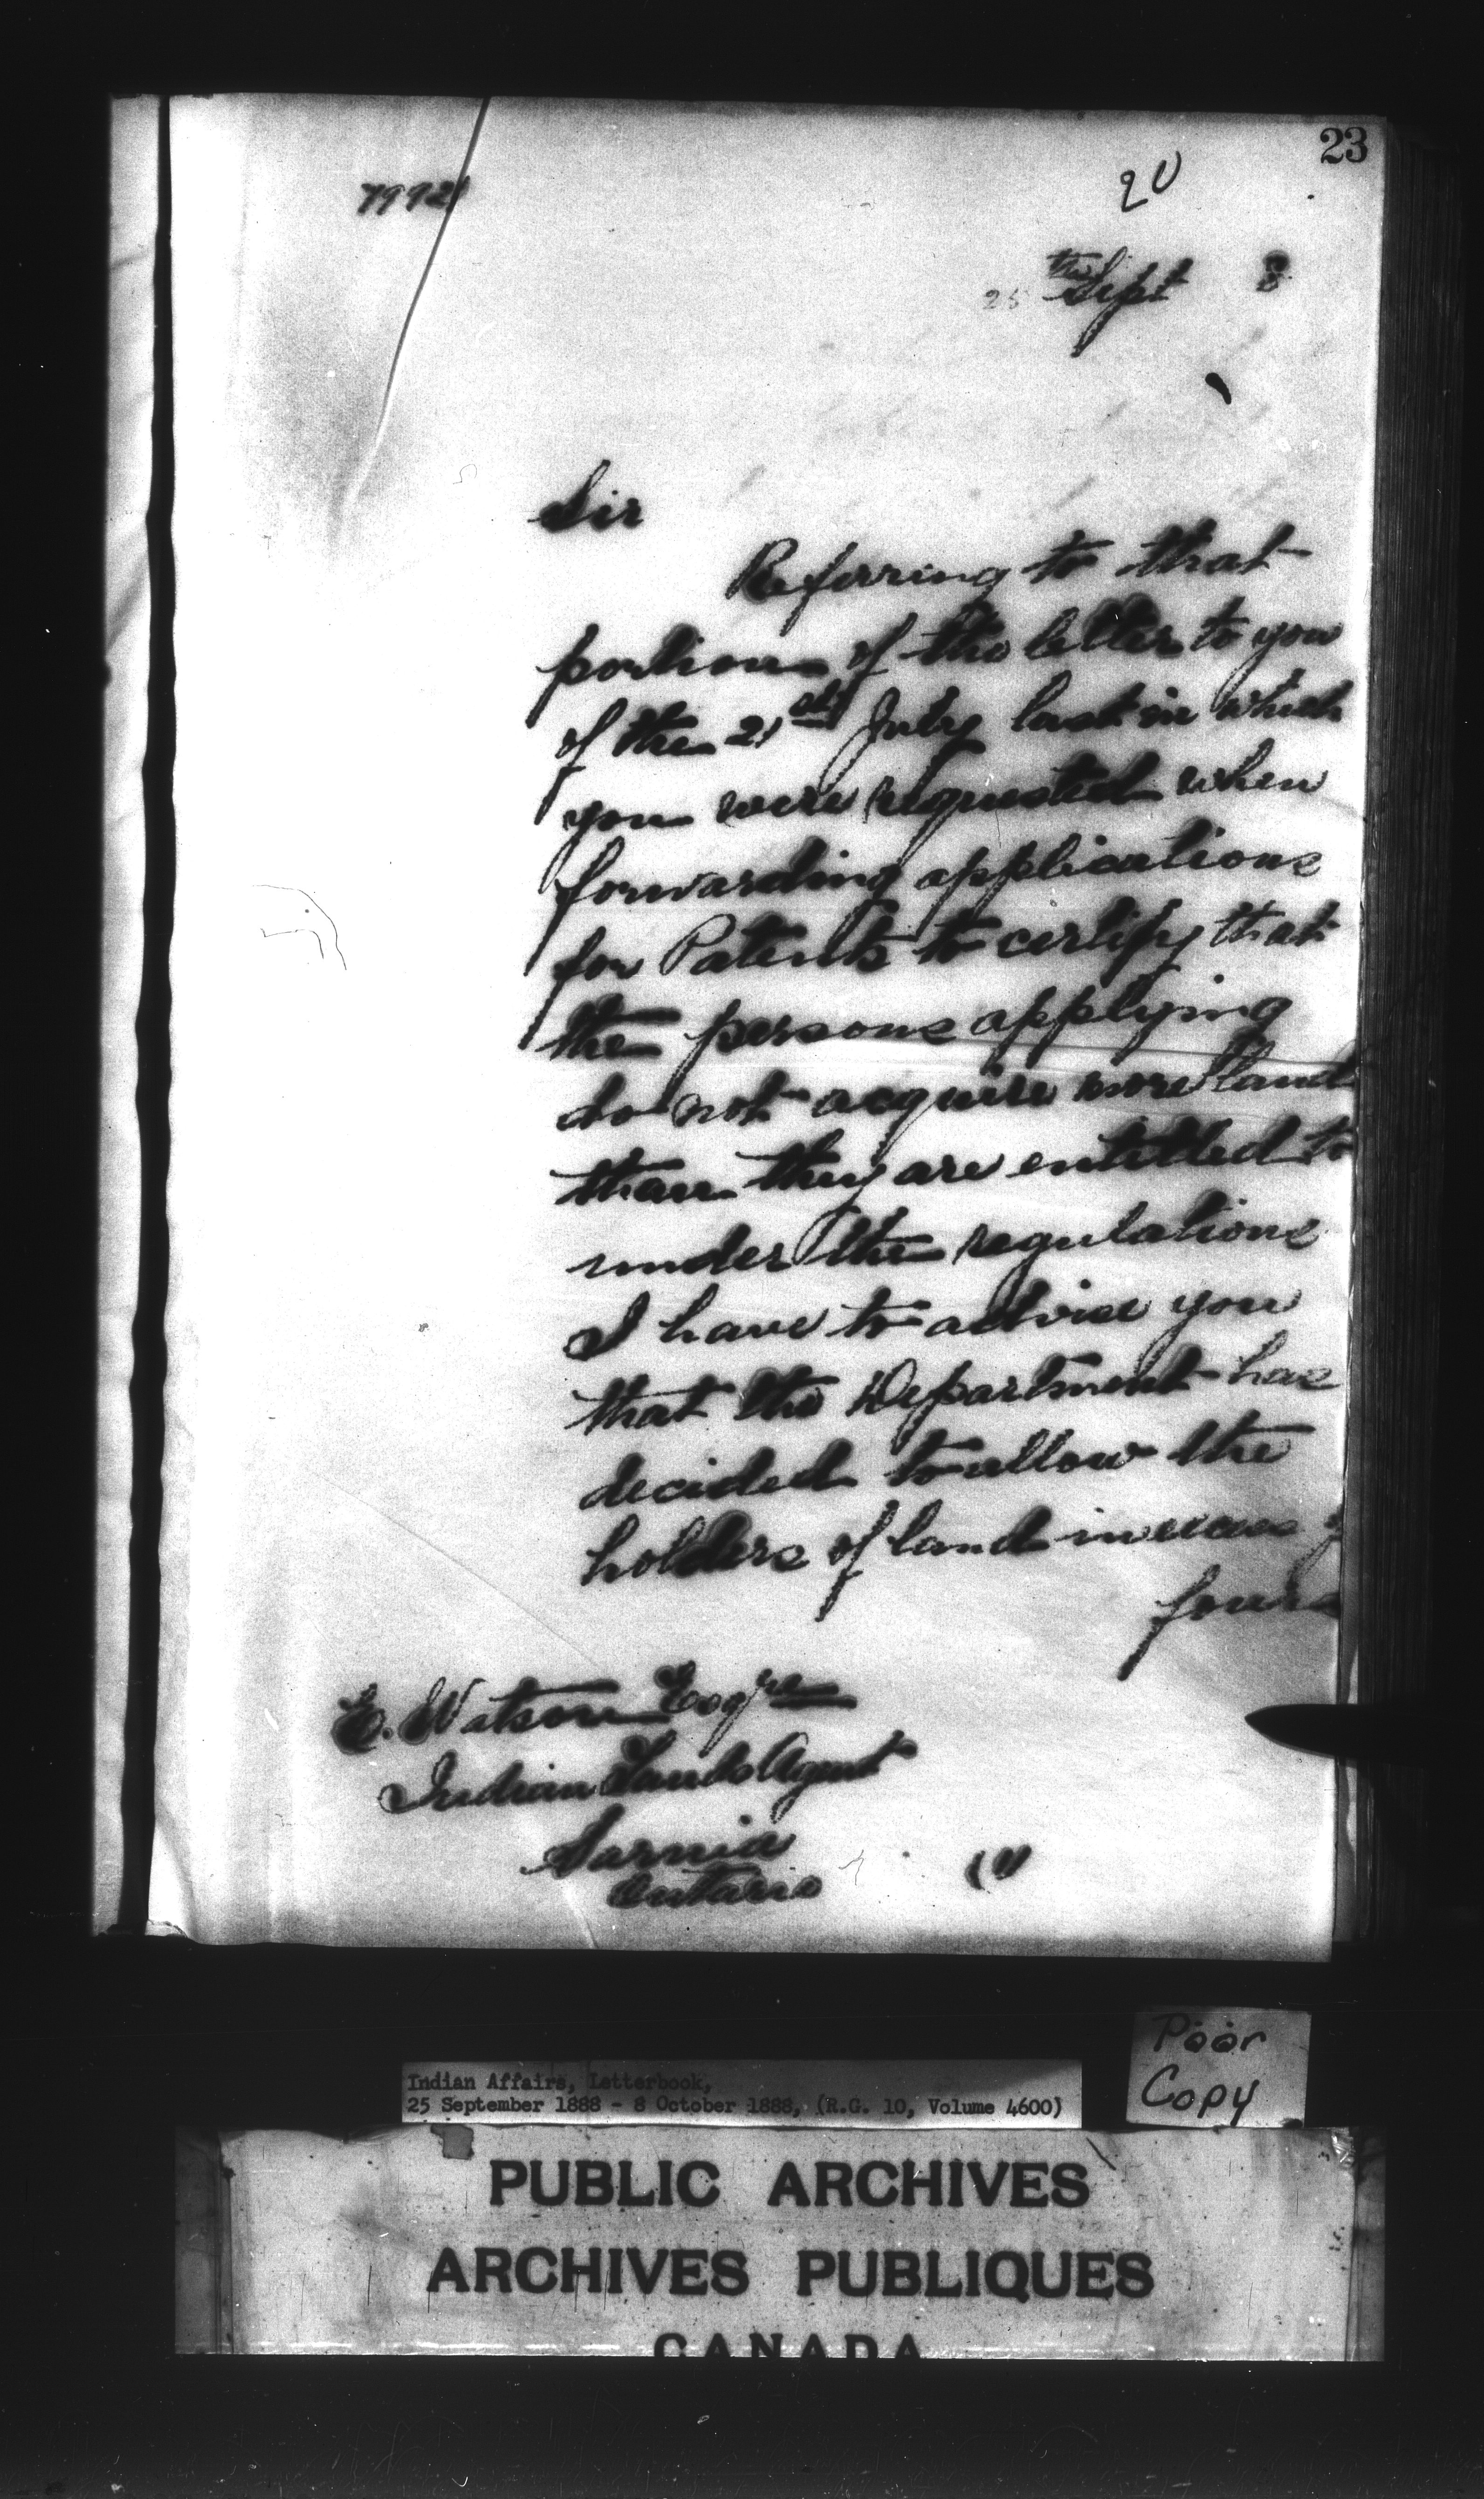 23
20
7992
25th Sept 8
Sir
Referring to that
portion of the letter to you
of the 21st July last in which
you were requested when
forwarding applications
for Patents to certify that
the persons applying
do not acquire more land
than they are entitled to
under the regulations
I have to advise you
that the Department has
decided to allow the
holders of land in excess of
four
E. Watson Esqre
Indian Lands Agent
Sarnia
Ontario
Poor
Copy
Indian Affairs, Letterbook,
25 September 1888 - 8 October 1888, (R.G. 10, Volume 4600)
PUBLIC ARCHIVES
ARCHIVES PUBLIQUES
CANADA